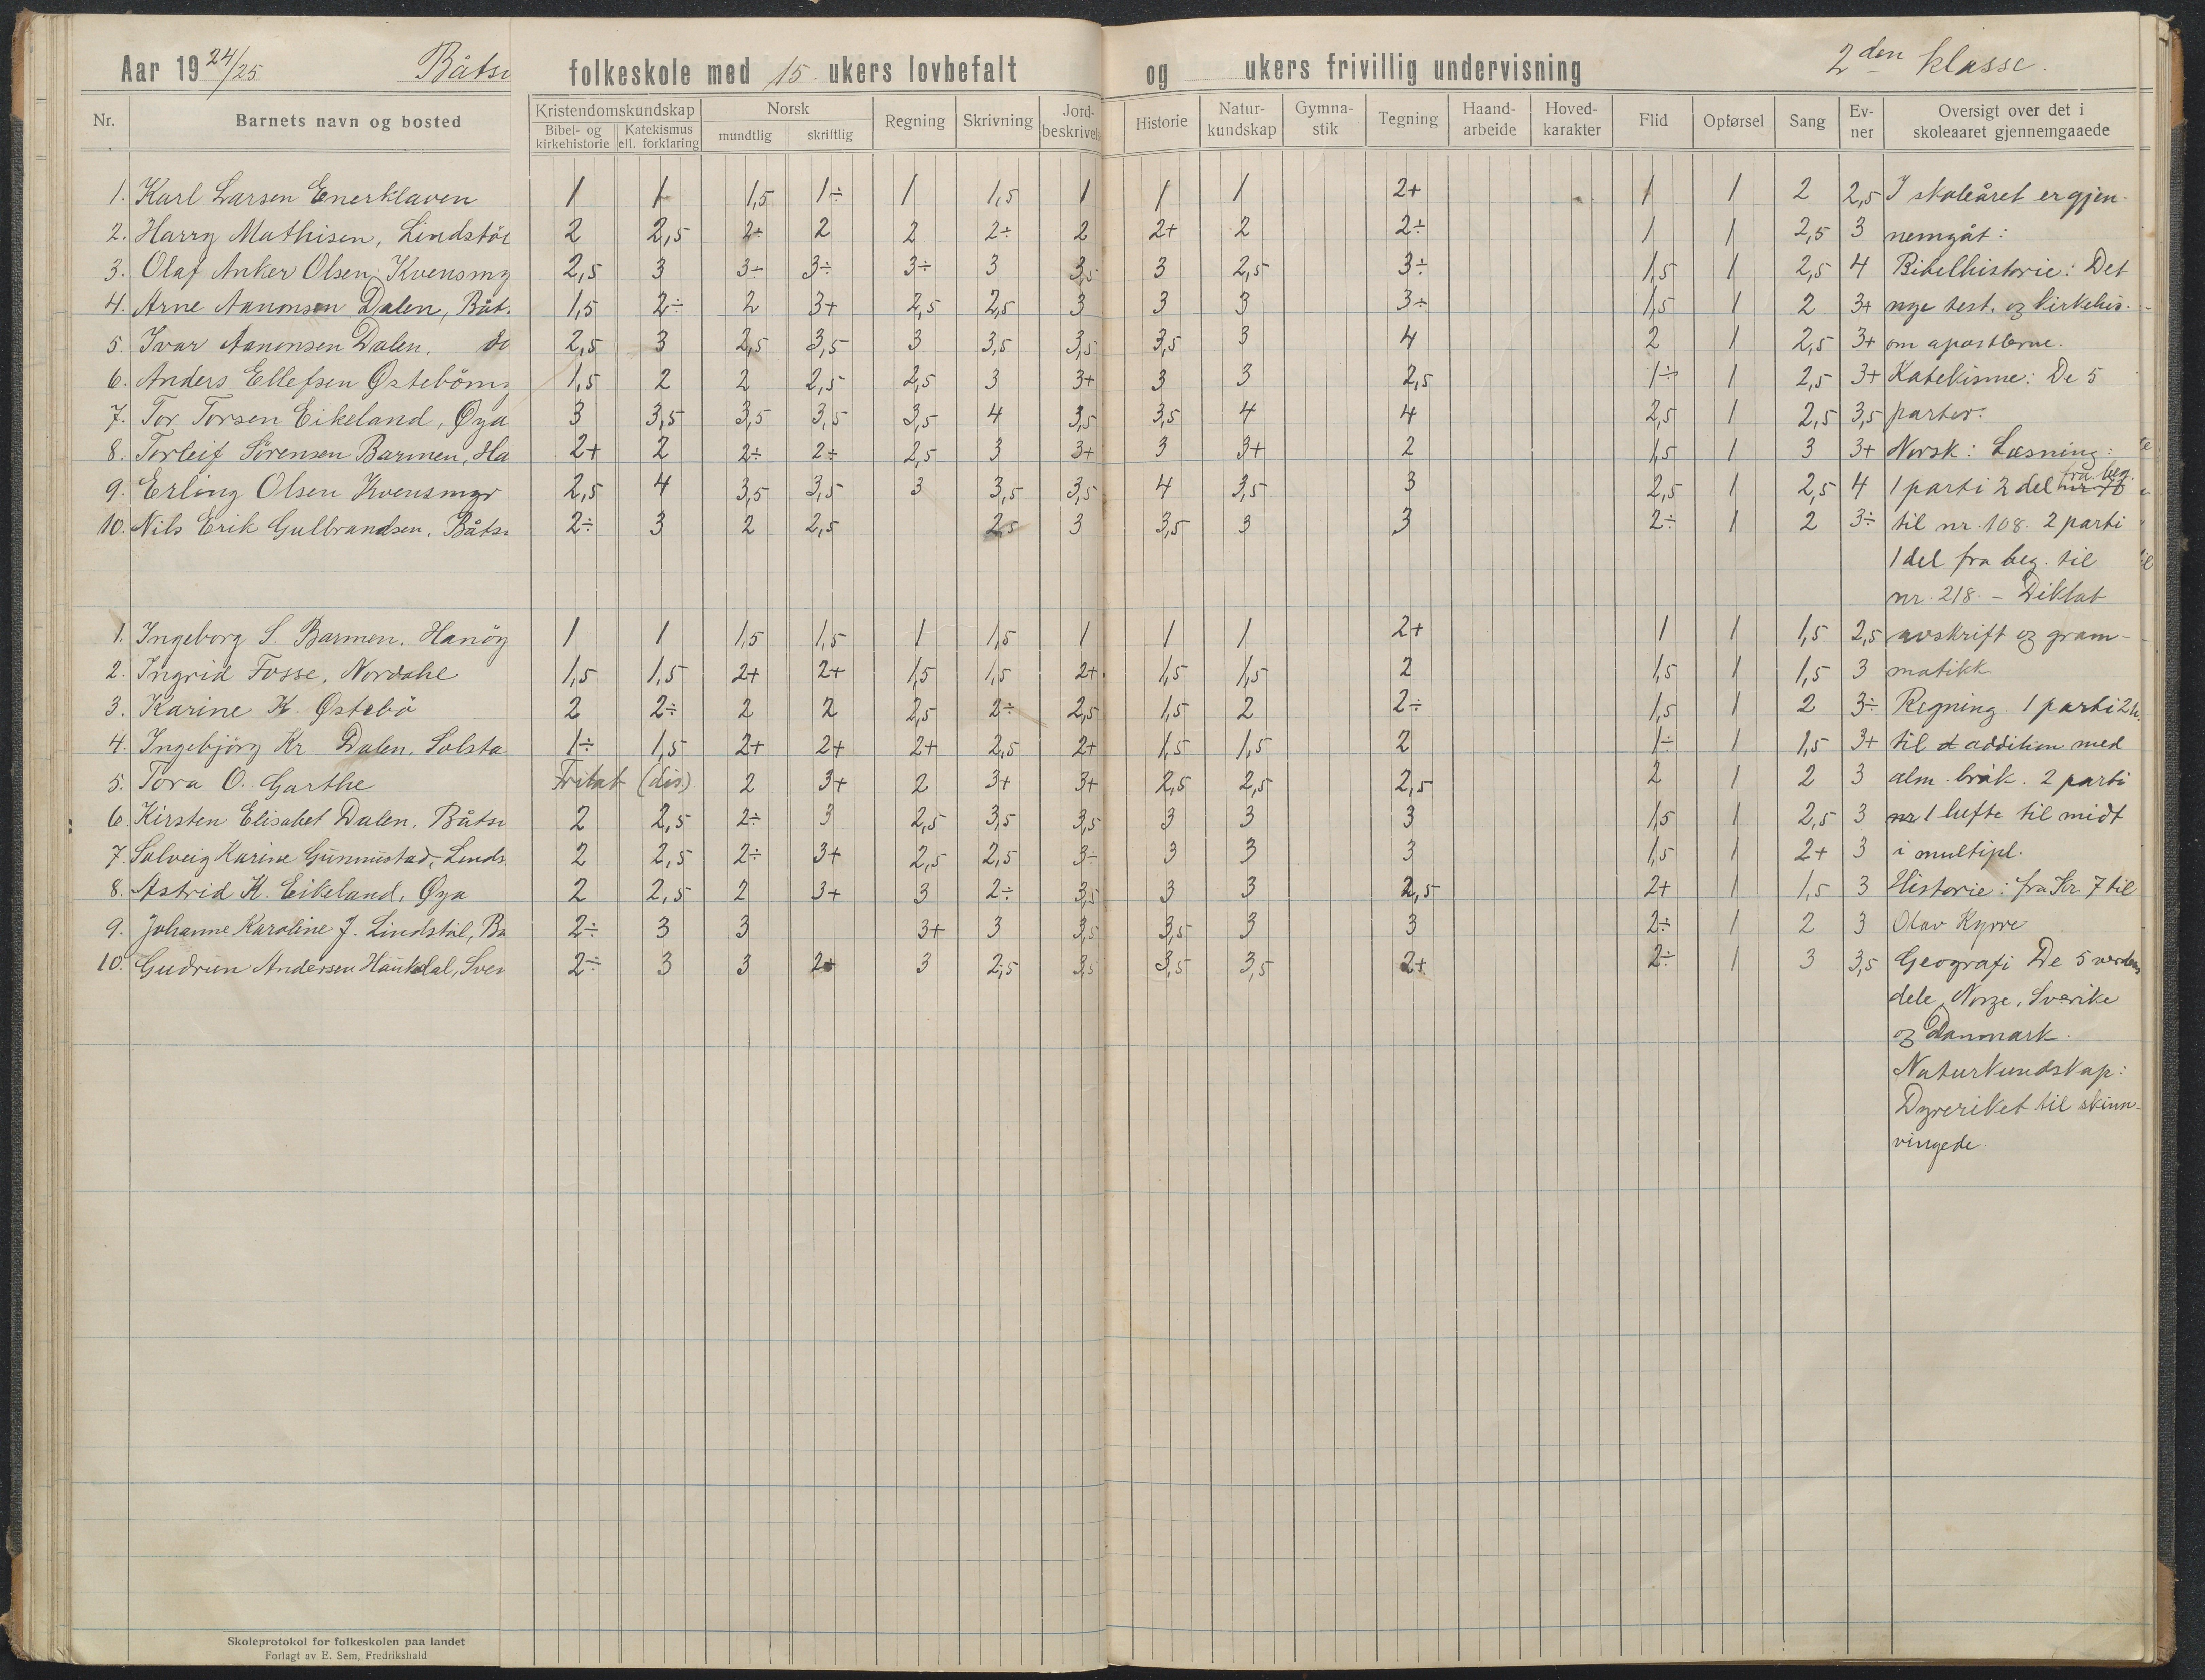 Aar 19 24/25 Båtsi folkeskole med 15 ukers lovbefalt og ukers frivillig undervisning 2den klasse.
Nr. Barnets navn og bosted Kristendomskundskap Norsk Regning Skrivning Jord-beskrivel Historie Natur-kundskap Gymna-stik Tegning Haand-arbeide Hoved-karakter Flid Opførsel Sang Ev-ner Oversigt over det i skoleaaret gjennemgaaede
Bibel- og kirkehistorie Katekismus ell. forklaring mundtlig skriftlig
1. Karl Larsen Enerklaven 1 1 1,5 1÷ 1 1,5 1 1 1 2+ 1 1 2 2,5 I skoleåret er gjen-
2. Harry Mathisen, Lindstöl 2 2,5 2÷ 2 2 2÷ 2 2+ 2 2÷ 1 1 2,5 3 nemgåt:
3. Olaf Anker Olsen, Kvensmy 2,5 3 3÷ 3÷ 3÷ 3 3,5 3 2,5 3÷ 1,5 1 2,5 4 Bibelhistorie: Det
4. Arne Aanonsen Dalen, Båt. 1,5 2÷ 2 3+ 2,5 2,5 3 3 3 3÷ 1,5 1 2 3+ nye test. og kirkehis-
5. Ivar Aanonsen Dalen, do 2,5 3 2,5 3,5 3 3,5 3,5 3,5 3 4 2 1 2,5 3+ om apostlerne.
6. Anders Ellefsen Østebömy 1,5 2 2 2,5 2,5 3 3+ 3 3 2,5 1÷ 1 2,5 3+ Katekisme: De 5
7. Tor Torsen Eikeland, Øya 3 3,5 3,5 3,5 3,5 4 3,5 3,5 4 4 2,5 1 2,5 3,5 parter.
8. Torleif Sörensen Barmen, Ha 2+ 2 2÷ 2÷ 2,5 3 3+ 3 3+ 2 1,5 1 3 3+ Norsk: Læsning:
9. Erling Olsen Kvensmyr 2,5 4 3,5 3,5 3 3,5 3,5 4 3,5 3 2,5 1 2,5 4 1 parti 2 del fra beg.
10. Nils Erik Gulbrandsen, Båts 2÷ 3 2 2,5 2,5 3 3,5 3 3 2÷ 1 2 3÷ til nr. 108. 2 parti
1 del fra beg. til
nr. 218. – Diktat
1. Ingeborg S. Barmen, Hanöy 1 1 1,5 1,5 1 1,5 1 1 1 2+ 1 1 1,5 2,5 avskrift og gram-
2. Ingrid Fosse, Nordahl 1,5 1,5 2+ 2+ 1,5 1,5 2+ 1,5 1,5 2 1,5 1 1,5 3 matikk
3. Karine K. Østebö 2 2÷ 2 2 2,5 2÷ 2,5 1,5 2 2÷ 1,5 1 2 3÷ Regning. 1 parti 2 h.
4. Ingebjörg Kr. Dalen, Solsta 1÷ 1,5 2+ 2+ 2+ 2,5 2+ 1,5 1,5 2 1÷ 1 1,5 3+ til addition med
5. Tora O. Garthe Fritat (dis) 2 3+ 2 3+ 3+ 2,5 2,5 2,5 2 1 2 3 alm. bråk. 2 parti
6. Kirsten Elisabet Dalen, Båtsi 2 2,5 2÷ 3 2,5 3,5 3,5 3 3 3 1,5 1 2,5 3 1 hefte til midt
7. Solveig Karine Gunnustad, Linds 2 2,5 2÷ 3+ 2,5 2,5 3÷ 3 3 3 1,5 1 2+ 3 i multipl.
8. Astrid K. Eikeland, Øya 2 2,5 2 3+ 3 2÷ 3,5 3 3 2,5 2+ 1 1,5 3 Historie: fra Kr. 7 til
9. Johanne Karoline J. Lindstöl, Ba 2÷ 3 3 3+ 3 3,5 3,5 3 3 2÷ 1 2 3 Olav Kyrre
10. Gudrun Andersen Haukdal, Sven 2÷ 3 3 2+ 3 2,5 3,5 3,5 3,5 2+ 2÷ 1 3 3,5 Geografi De 5 verdens
dele, Norge, Sverike
og Danmark.
Naturkundskap:
Dyreriket til skinn-
vingede.
Skoleprotokol for folkeskolen paa landet
Forlagt av E. Sem, Fredrikshald